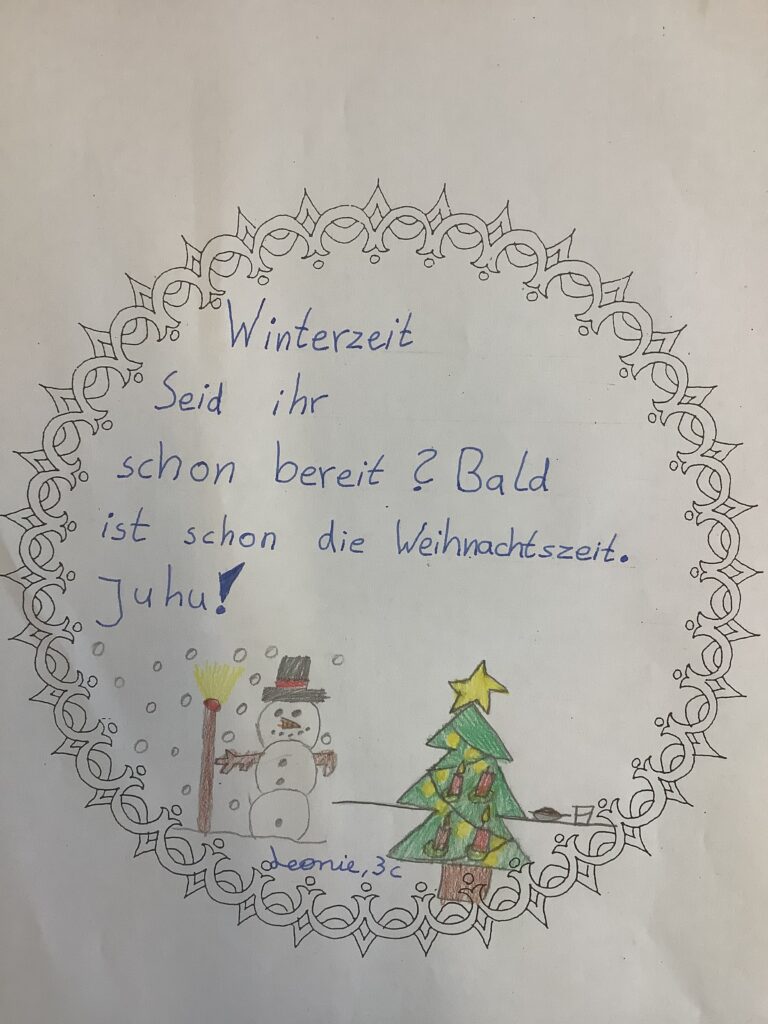 Winterzeit
Seid ihr
schon bereit? Bald
ist schon die Weihnachtszeit.
Juhu!
Leonie, 3c